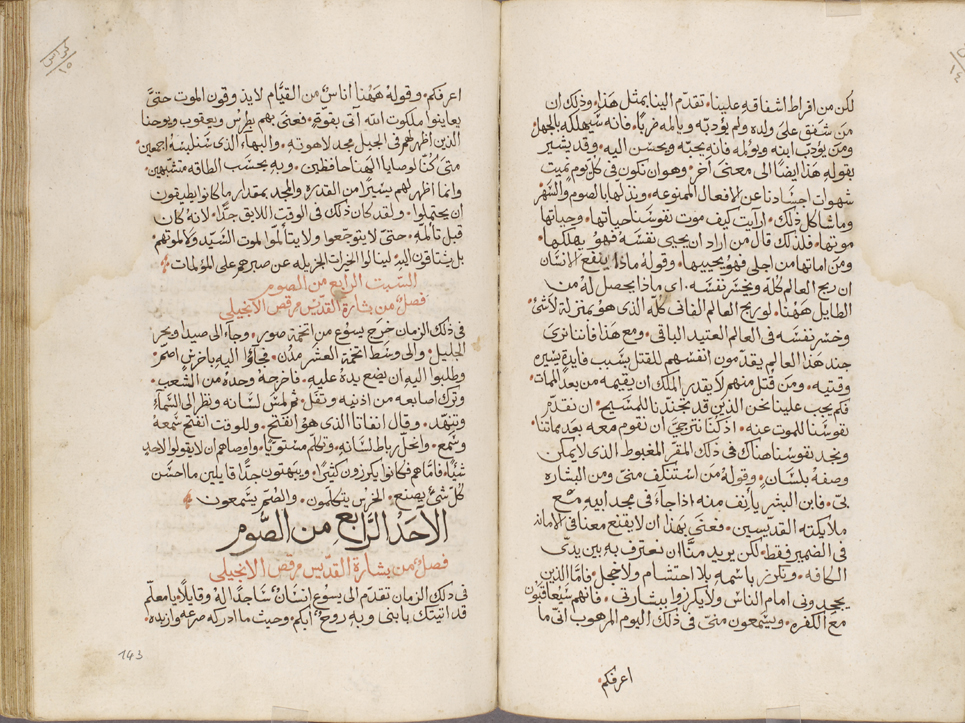 لكن من افراط اشفاقه علينا٠ تقدّم الينا بمثل هذا٠ وذلك ان
مَن شفق على ولده ولم يؤدّبه وبالمه ضربًا٠ فانه سَيهلكه بالجهل٠
ومن يؤدّب ابنه ويؤلمه فانه يحبّه ويحسن اليه٠ وقد يشير
بقوله هذا ايضًا الى معنىً آخر٠ وهو ان نكون في كل يوم نميت
شهوات اجسادنا عن الافعال الممنوعه٠ ونذلّها بالصوم والسّهر
وما شاكل ذلك٠ ارآيت كيف موت نفوسنا حياتها٠ وحياتها
موتها٠ فلذلك قال من اراد ان يحيي نفسَه فهو يهلكها٠
ومَن اماتها من اجلي فهو يحييها٠ وقولهُ ماذا ينفع الانسَان
ان ربح العالم كله ويخسر نفسَه٠ اي ماذا يحصل له من
الطايل هَهُنا٠ لو ربح العالم الفاني كلّه الذي هو بمنزلة لاشئ
وخسر نفسَه في العالم العتيد الباقي٠ ومع هذا فاننا نرى
جند هذا العالم يقدّمون انفسَهم للقتل بسَبب فايدةٍ يسَيره
وقتيه٠ ومن قُتل منهم لا يقدر الملك ان يقيمه من بعد الممات٠
فكم يجب علينا نحن الذين قد تجندنا للمسَيح٠ ان نقدّم
نفوسَنا للموت عنه٠ اذ كنّا نترجّي ان نقوم معه بعد مماتنا٠
ونجد نفوسنا هناك في ذلك المقرّ المغبوط الذي لا يمكن
وصفهُ بلسَانٍ٠ وقولهُ مَن استنكف منّي ومن البشاره
بي٠ فابن البشر يأنف منه اذا جآء في مجد ابيه مع
ملايكته القديسين٠ فعنَى بهذا ان لا يقنع معنا في الامانه
في الضمير فقط٠ لكن يريد منّا ان نعترف به بين يدَي
الكافه٠ ونكرز باسْمه بلا احتشام ولا خجل٠ فامّا الذين
يجحدوني امام الناسْ ولا يكرزوا ببشارتي٠ فانهم سَيُعاقبُون
مع الكفره٠ ويسَمعون منّي في ذلك اليوم المرهوب انّي ما
اعرفكم٠
اعرفكم٠ وقولهُ هَهُنا اناسٌ من القيَّام لا يذوقون الموت حتّى
يعاينوا ملكوت الله آتي بقوةٍ٠ فعنَى بهم بطرسْ ويعقوب ويوحنا
الذين اظهر لهُم في الجبل مجد لاهوته٠ والبهآء الذي سَنلبسهُ اجمعين٠
متى كُنّا لوصايا الهنا حافظين٠ وبه بحسَب الطاقه متشبّهين٠
وانما اظهر لهم يسَيرًا من القدره والمجد بمقدار ما كانوا يطيقون
ان يحتملوا٠ ولقد كان ذلك في الوقت اللايق جدًّا٠ لانه كان
قبل تألّمه٠ حتى لا يتوجّعوا ولا يتألّموا لموت السّيّد ولا لموتهم٠
بل يشتاقون اليه لينالوا الخيرات الجزيله عن صبرهم على المؤلمات٠
السّبت الرابع من الصوم
فصلٌ من بشارة القدّيسْ مرقص الانجيلي
في ذلك الزمان خرج يسَوع من اتخمة صور٠ وجاء الى صيدا وبحر
الجليل٠ والى وسَط اتخمة العشر مدُن٠ فجآؤا اليه باخرسْ اصمّ٠
وطلبوا اليه ان يضع يدهُ عليه٠ فاخرجهُ وحدهُ من الشّعب٠
وترك اصابعه من اذنيه وتفل٠ ثم لمسَ لسَانه ونظر الى السّمآء
وتنهّد٠ وقال انفاتا الذي هو انفتح٠ وللوقت انفتح سَمعهُ
وسُمع٠ وانحلّ رباط لسَانه٠ وتكلم مستَويًا٠ واوصاهم ان لا يقولوا لاحدٍ
شيًّا٠ فامّا هم فكانوا يكرزون كثيرًا٠ ويبهتون جدًّا قايلين ما احسَن
كلّ شئ يصنع٠ الخرسْ يتكلّمون٠ والصّم يسَمعون
الآحَدُ الرّابع من الصَّوم
فصلٌ من بشارة القدّيسْ مرقص الانجيلي
في ذلك الزمان تقدّم الى يسَوع انسَانٌ سَاجدًا لهُ وقايلًا٠ يا معلّم
قد اتيتك بابني وبه روحٌ ابكم٠ وحيث ما ادركه صرعه وازبده٠
143